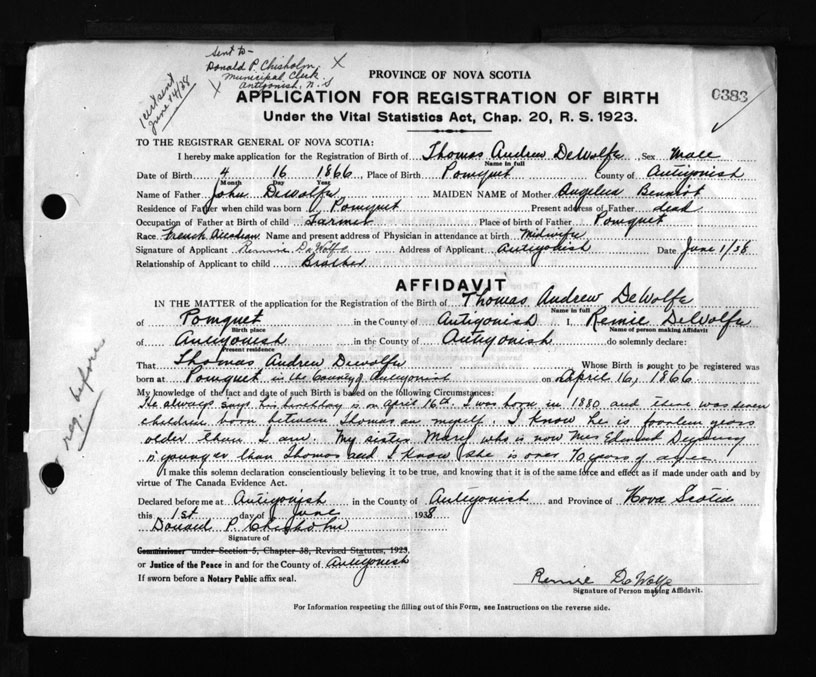 Sent to -
Donald P. Chisholm X
X Municipal Clerk
Antigonish, N.S
1 cert sent
June 14/38
PROVINCE OF NOVA SCOTIA
APPLICATION FOR REGISTRATION OF BIRTH
0383
Under the Vital Statistics Act, Chap. 20, R. S. 1923.
TO THE REGISTRAR GENERAL OF NOVA SCOTIA:
I hereby make application for the Registration of Birth of Thomas Andrew DeWolfe Sex Male
Name in full
Date of Birth 4 16 1866 Place of Birth Pomquet County of Antigonish
Month Day Year
Name of Father John DeWolfe MAIDEN NAME of Mother Angelia Benniot
Residence of Father when child was born Pomquet Present address of Father dead
Occupation of Father at Birth of child Farmer Place of birth of Father Pomquet
Race French Acadian Name and present address of Physician in attendance at birth Midwife
Signature of Applicant Remmie DeWolfe Address of Applicant Antigonish Date June 1/38
Relationship of Applicant to child Brother
AFFIDAVIT
IN THE MATTER of the application for the Registration of the Birth of Thomas Andrew DeWolfe
Name in full
of Pomquet in the County of Antigonish I, Remie DeWolfe
Birth place Name of person making Affidavit
of Antigonish in the County of Antigonish do solemnly declare:
Present residence
That Thomas Andrew Dewolfe Whose Birth is sought to be registered was
born at Pomquet in the County of Antigonish on April 16, 1866
My knowledge of the fact and date of such Birth is based on the following Circumstances:
He always says his birthday is on April 16th. I was born in 1880 and there was seven
children born between Thomas an myself. I know he is fourteen years
older than I am. My sister Mary who is now Mrs Edmund
is younger than Thomas and I know she is over 70 years of age.
reg. before
I make this solemn declaration conscientiously believing it to be true, and knowing that it is of the same force and effect as if made under oath and by
virtue of The Canada Evidence Act.
Declared before me at Antigonish in the County of Antigonish and Province of Nova Scotia
this 1st day of June 1938
Donald P. Chisholm
Signature of
Commissioner under Section 5, Chapter 38, Revised Statutes, 1923
or Justice of the Peace in and for the County of Antigonish
If sworn before a Notary Public affix seal.
Remie DeWolfe
Signature of Person making Affidavit.
For Information respecting the filling out of this Form, see Instructions on the reverse side.